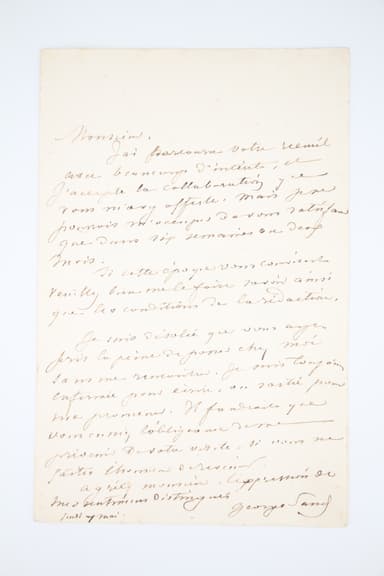 Monsieur.
J'ai parcouru votre recueil
avec beaucoup d'intérêt, et
j'accepte la collaboration que
vous m'avez offerte. Mais je ne
pourrais m'occuper de vous satisfaire
que dans six semaines ou deux
mois.
Si cette époque vous convient
veuillez bien me le faire savoir ainsi
que les conditions de la rédaction.
Je suis désolée que vous ayez
pris la peine de passer chez moi
sans me rencontrer. Je suis toujours
enfermée pour écrire, ou sortie pour
me promener. Il faudrait que
vous eussiez l'obligeance de me
prévenir de votre visite, si vous me
faites l'honneur de revenir
agréez monsieur l'expression de
mes sentimens distingués
George Sand
jeudi mai.